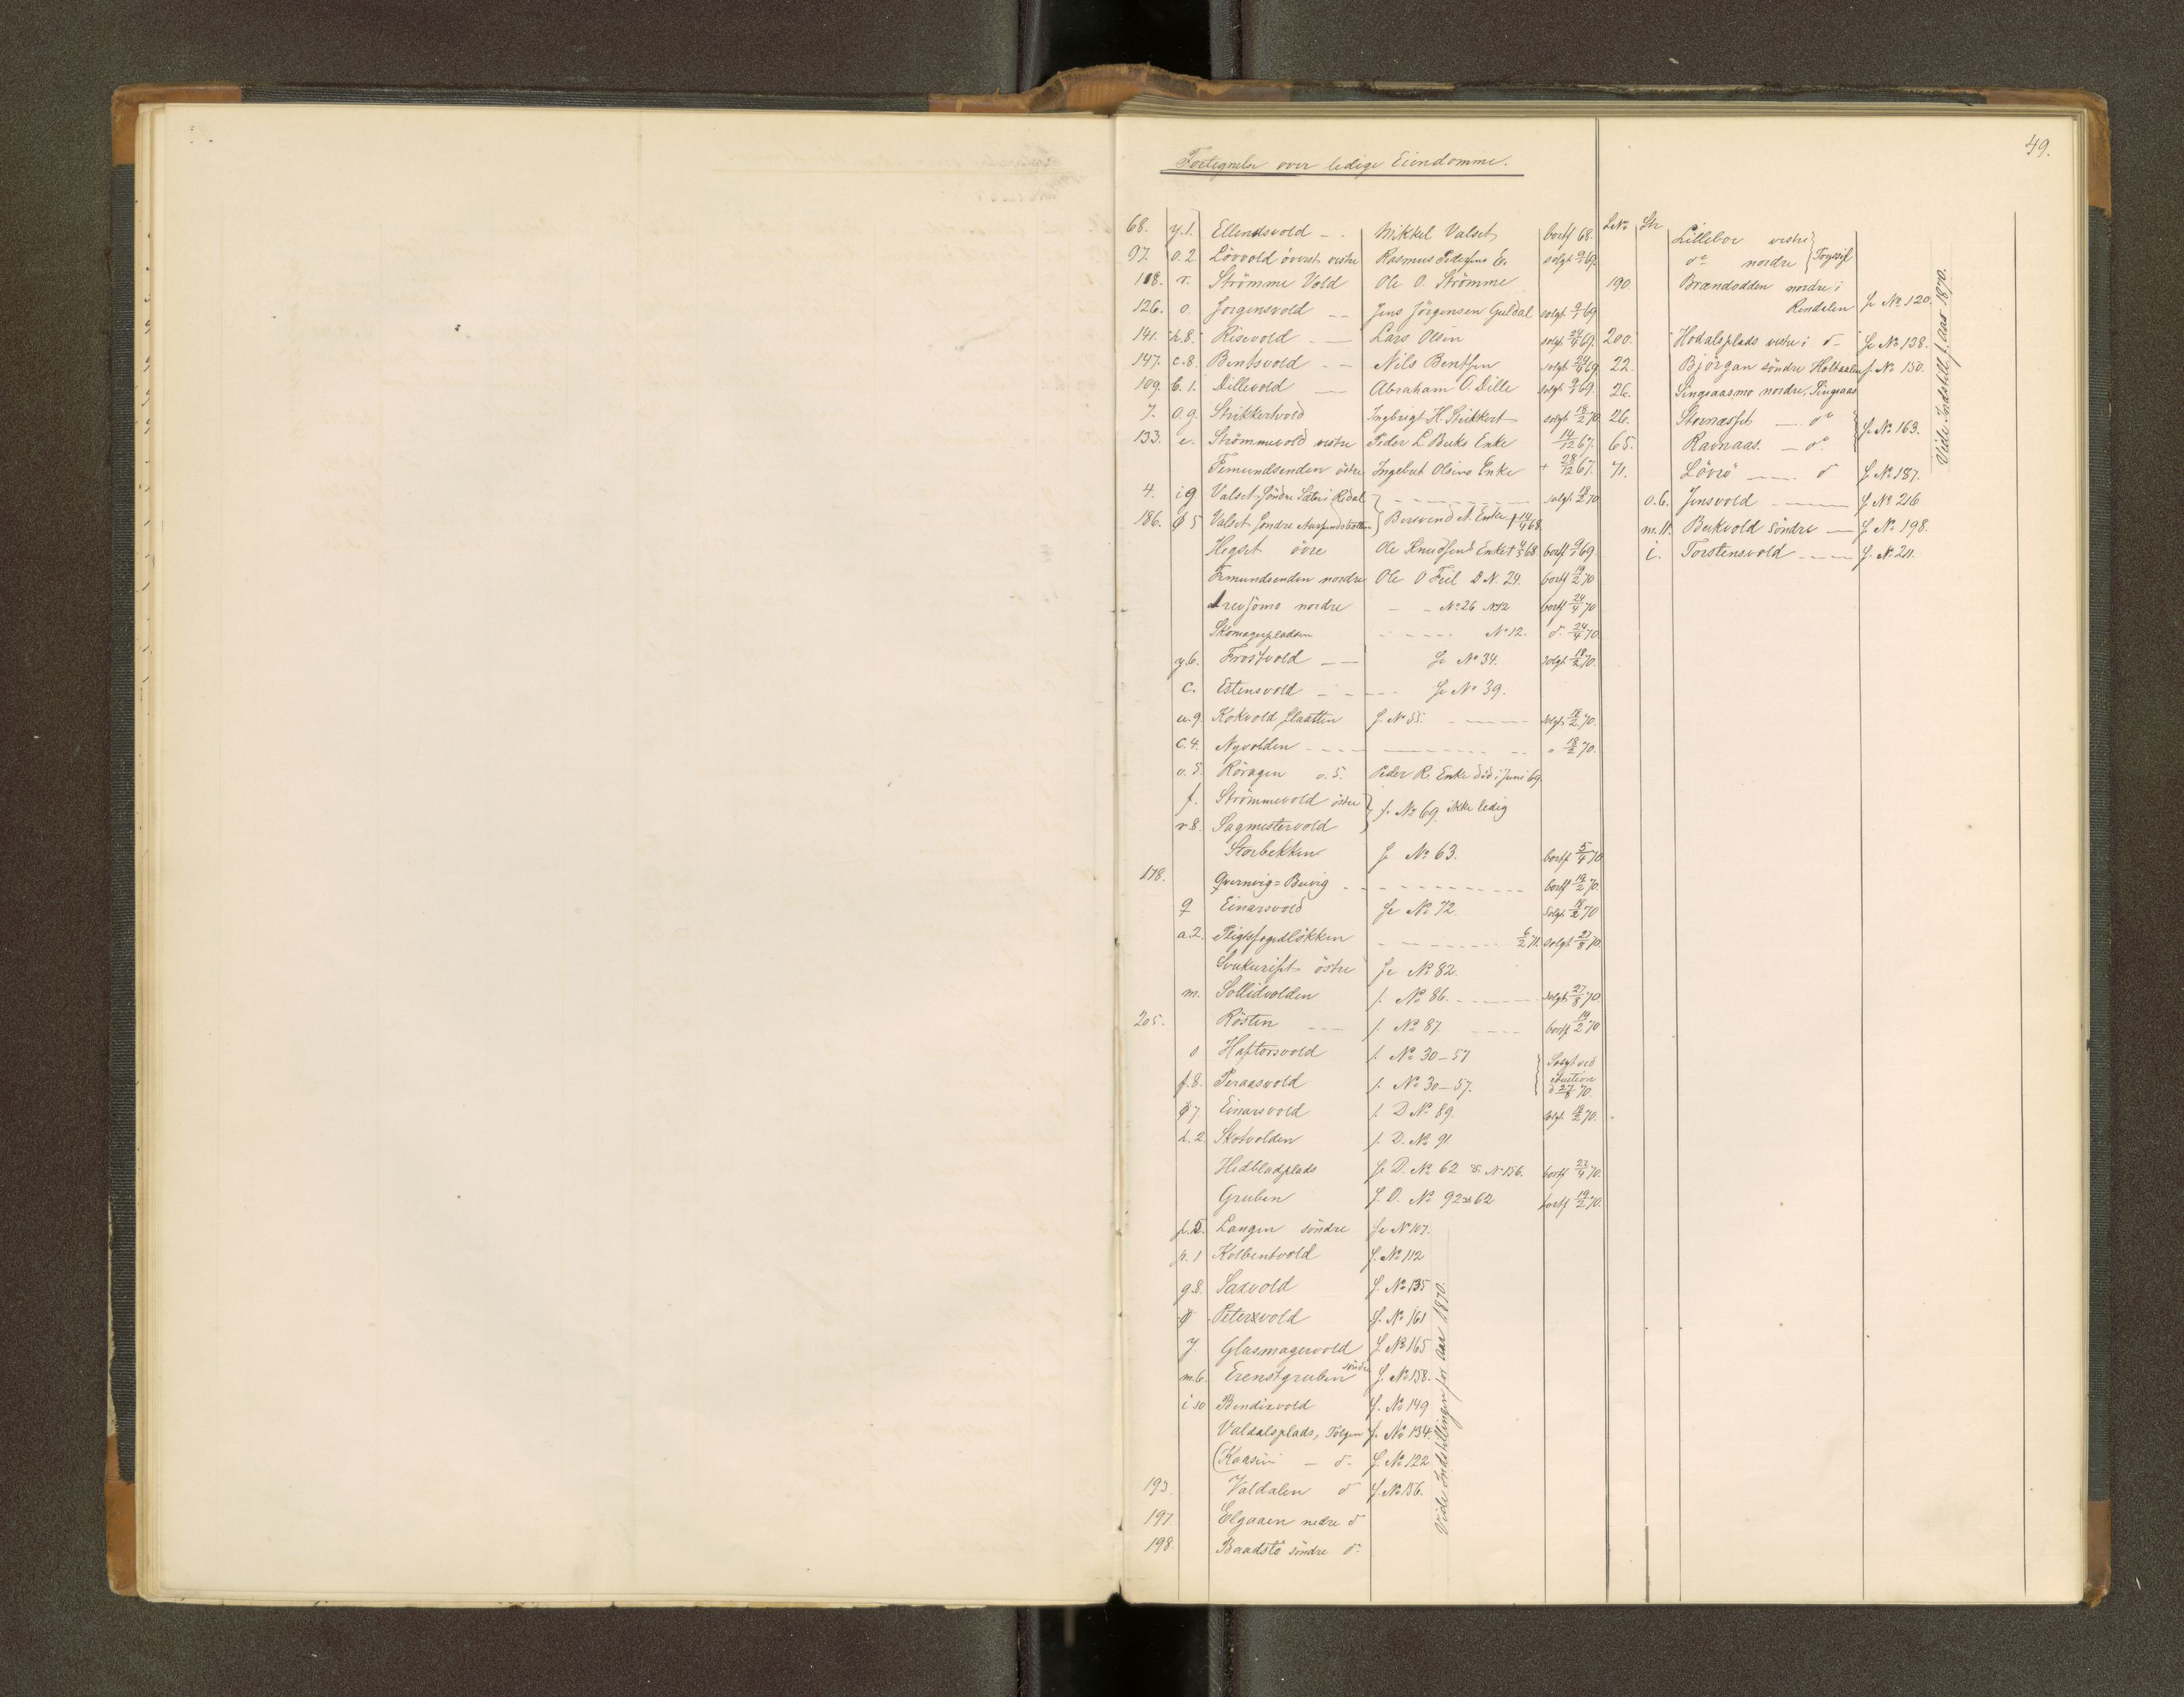 49.
Fortegnelse over ledige Eiendomme.
68. y.1. Ellendsvold - - Mikkel Valset bortf 68.
97. o.2. Lövvold överst vestre Rasmus Pedersens E. solgt 9/1 69.
118. r. Strömme Vold Ole O. Strömme
126. o. Jörgensvold - - Jens Jörgensen Guldal solgt 9/1 69
141. h.8. Risevold - - Lars Olsen solgt 24/4 69.
147. c.8. Bentsvold - - Nils Bentsen solgt 24/4 69
109. b.1. Dillevold - - Abraham O. Dille solgt 9/1 69.
7. o.g. Strikkertvold Ingbrigt H. Strikkert solgt 18/2 70
133. e. Strömmevold vestre Peder L. Beeks Enke 14/12 67.
Femundsenden östre Ingebret Olsens Enke + 28/12 67.
4. i9 Valset Söndre Sæter i Rödal - - - solgt 18/2 70
186. ø5 Valset Söndre Aursundsletten Berevend A. Enke + 14/4 68.
Hegset övre Ole Knudsens Enke + 4/5 68 bortf 9/1 69.
Femundsenden nordre Ole O Fiel D N. 29. bortf 19/2 70
Drevsjömo nordre - - No 26 No 12 bortf 24/4 70
Skomagerpladsen - - - No 12. do 24/4 70
y.6. Frostvold - - Se No 34. solgt 18/2 70.
c. Estensvold - - - Se No 39.
u.9. Kokvold Slaatten S. No 55. - - - solgt 18/2 70.
c.4. Nyvolden - - - - - - " 18/2 70.
o.5. Röragen o.5. Peder R. Enke död i Juni 69.
f. Strömmevold östre } s. No 69. ikke ledig
r.8. Sagmestervold
Storbekken Se No 63. bortf 5/4 70
178. Qvernvig = Buvig - - - bortf 19/2 70.
q Einarsvold Se No 72. Solgt 18/2 70
a.2. Pligtsfogedlökken - - - 6/2 71. solgt 27/8 70.
Svukurift östre Se No 82.
m. Sollidvolden s. No 86. - - - solgt 27/8 70.
205. Rösten - - s. No 87. - - - bortf 19/2 70
o Haftorsvold s. No 30-57 } Solgt ved
f.8. Peraasvold s. No 30-57. Auction d 27/8 70.
ø7. Einarsvold s. D No 89. solgt 18/2 70.
h.2. Skotvolden s. D. No 91.
Hedbladplads Se D. No 62 & No 156. bortf 22/4 70.
Gruben S. D. No 92 & 62 bortf 19/2 70.
p.5. Langen söndre Se No 107.
p.1 Kolbentvold S. No 112
g.8. Saxvold S. No 135
ø Petersvold S. No 161
y. Glasmagervold S. No 165
m.6. Erenstgruben söndre S. No 158.
i 10 Bendixvold S. No 149
Valdalsplads, Tolgen S. No 134.
(Kaasen - do S. No 122
193. Valdalen do S. No 156.
197. Elgaaen nedre do
198. Baadstö söndre do
Vide Indstillingen for Aar 1870.
L No Ltr
Lillebo vestre } Trysil
do nordre
190. Brændodden nordre i
Rendalen Se No. 120.
200. Hodalsplads vestre i do Se No 138.
22. Björgan söndre Holtaalen s. No 150.
26. Singsaasmo nordre, Singsaas
26. Stornæsset - do } S. No 163.
65. Ravnaas. - do
71. Lövrö - - do S. No 187.
o.6. Jensvold - - - S No 216
m.11. Bukvold söndre - S No 198.
i. Torstensvold - - - S. No 211.
Vide Indstill f. Aar 1870.